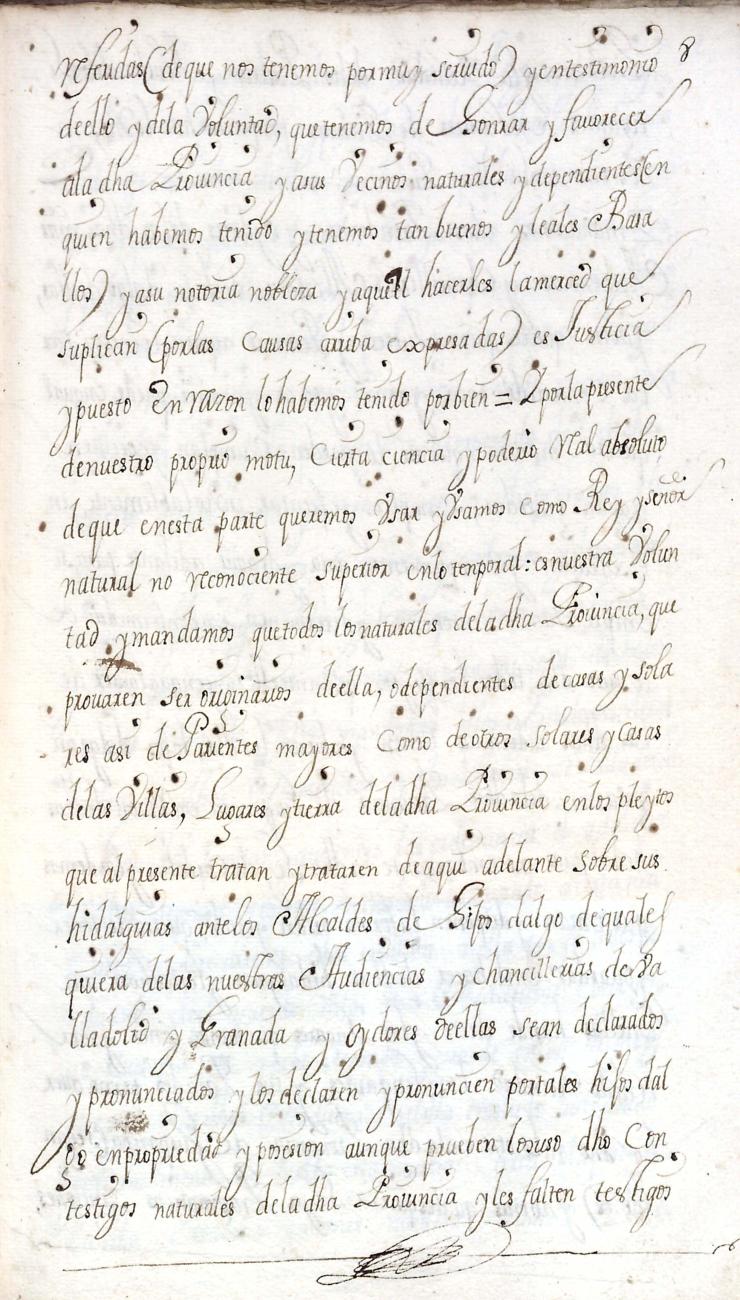 8
referidas (de que nos tenemos por muy servido) y en testimonio
de ello y de la Voluntad, que tenemos de Honrar y favorecer
a la dha Provincia y a sus Vecinos naturales y dependientes (en
quien habemos tenido y tenemos tan buenos y leales Basa
llos) y a su notoria nobleza y aquel hacerles la merced que
suplican (por las Causas arriba expresadas) es Justicia
y puesto En razon lo habemos tenido por bien = Y por la presente
de nuestro proprio motu, Cierta ciencia y poderio Real absoluto
de que en esta parte queremos Vsar y Vsamos Como Rey y señor
natural no reconociente superior en lo temporal: es nuestra Volun
tad y mandamos que todos los naturales de la dha Provincia, que
provaren ser originarios de ella, o dependientes de casas y sola
res asi de Parientes mayores Como de otros solares y Casas
de las Villas, Lugares y tierra de la dha Provincia en los pleytos
que al presente tratan y trataren de aqui adelante sobre sus
hidalguias ante los Alcaldes de Hijos dalgo de quales
quiera de las nuestras Audiencias y Chancillerias de Va
lladolid y Granada y Oydores de ellas sean declarados
y pronunciados y los declaren y pronuncien por tales hijos dal
go en propriedad y posesion aunque prueben lo suso dho Con
testigos naturales de la dha Provincia y les falten testigos